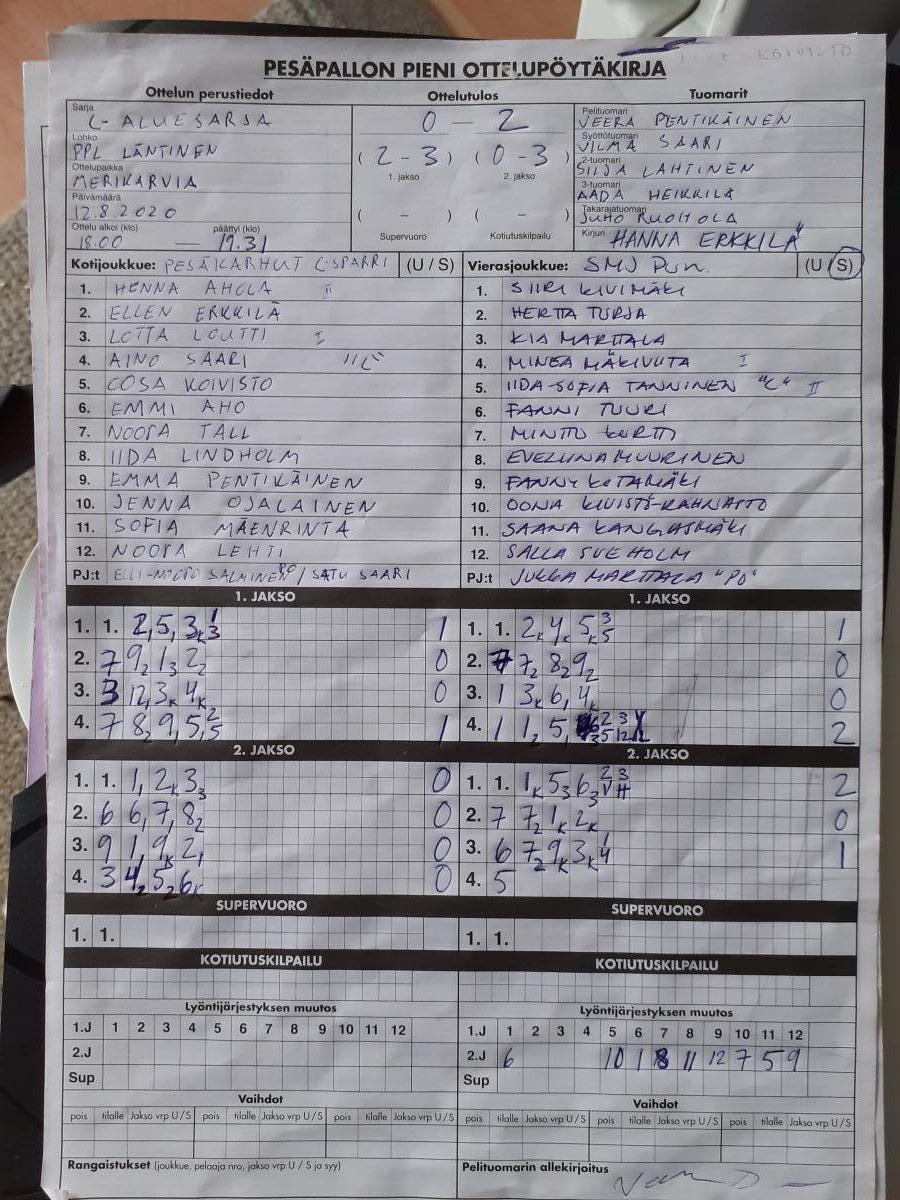 PESÄPALLON PIENI OTTELUPÖYTÄKIRJA
Ottelun perustiedot Ottelutulos Tuomarit
Sarja
C-ALUESARJA
Lohko
PPL LÄNTINEN
Ottelupaikka
MERIKARVIA
Päivämäärä
12.8.2020
Ottelu alkoi (klo) päättyi (klo)
18.00 — 19.31
0 — 2
(2-3) (0-3)
1. jakso 2. jakso
( - ) ( - )
Supervuoro Kotiutuskilpailu
Pelituomari
VEERA PENTIKÄINEN
Syöttötuomari
VILMA SAARI
2-tuomari
SILJA LAHTINEN
3-tuomari
AADA HEIKKILÄ
Takarajatuomari
JUHO RUOHOLA
Kirjuri HANNA ERKKILÄ
Kotijoukkue: PESÄKARHUT C-SPARRI (U / S)
1. HENNA AHOLA II
2. ELLEN ERKKILÄ
3. LOTTA LOUTTI I
4. AINO SAARI "C"
5. COSA KOIVISTO
6. EMMI AHO
7. NOORA TALL
8. IIDA LINDHOLM
9. EMMA PENTIKÄINEN
10. JENNA OJALAINEN
11. SOFIA MÄENRINTA
12. NOORA LEHTI
PJ:t ELLI-NOORA SALMINEN / SATU SAARI
Vierasjoukkue: SMJ Pun. (U / S)
1. SIIRI KIVIMÄKI
2. HERTTA TURJA
3. KIA MARTTALA
4. MINEA MÄKIVUTA I
5. IIDA-SOFIA TANNINEN "C" II
6. FANNI TUURI
7. MINTTU KURTTI
8. EVELIINA MUURINEN
9. FANNY KETAMÄKI
10. OONA KIVISTÖ-RAHNASTO
11. SAANA KANGASMÄKI
12. SALLA SVEHOLM
PJ:t JUKKA MARTTALA "PD"
1. JAKSO
1. 1. 2,5,3K 1/3 1
2. 7 9 2 1 3 2 2 0
3. 3 12,3K 4K 0
4. 7 8 2 9,5, 2/5 1
2. JAKSO
1. 1. 1,2K 3 3 0
2. 6 6,7,8 2 0
3. 9 1,9K 2, 0
4. 3 4 2 5 2 6K 0
SUPERVUORO
1. 1.
KOTIUTUSKILPAILU
Lyöntijärjestyksen muutos
1.J 1 2 3 4 5 6 7 8 9 10 11 12
2.J
Sup
Vaihdot
pois tilalle Jakso vrp U / S pois tilalle Jakso vrp U / S pois tilalle Jakso vrp U / S
Rangaistukset (joukkue, pelaaja nro, jakso vrp U / S ja syy)
1. JAKSO
1. 1. 2K 4K 5K 3/5 1
2. 7 7 2 8 2 9 2 0
3. 1 3K 6,4K 0
4. 1 1 2 5, 2
2. JAKSO
1. 1. 1K 5 3 6 3 2
2. 7 7 2 1K 2K 0
3. 6 7 2 9K 3K 1/4 1
4. 5
SUPERVUORO
1. 1.
KOTIUTUSKILPAILU
Lyöntijärjestyksen muutos
1.J 1 2 3 4 5 6 7 8 9 10 11 12
2.J 6 10 1 8 11 12 7 5 9
Sup
Vaihdot
pois tilalle Jakso vrp U / S pois tilalle Jakso vrp U / S pois tilalle Jakso vrp U / S
Pelituomarin allekirjoitus